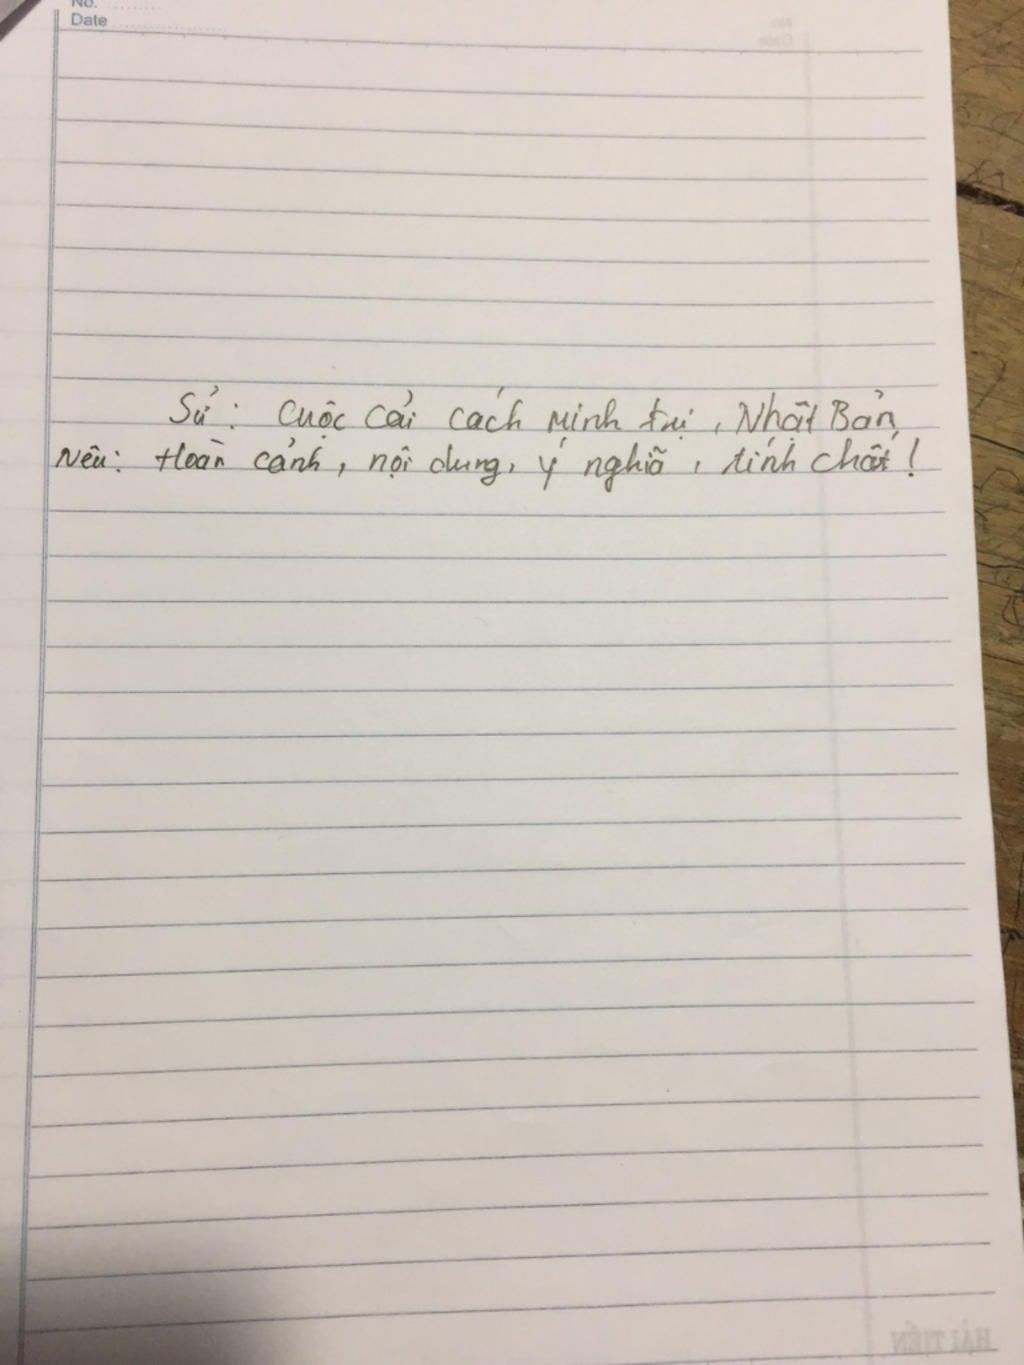 No.
Date
Sử: Cuộc cải cách Minh trị, Nhật Bản
Nêu: Hoàn cảnh, nội dung, ý nghĩa, tính chất!
HẢI TIẾN